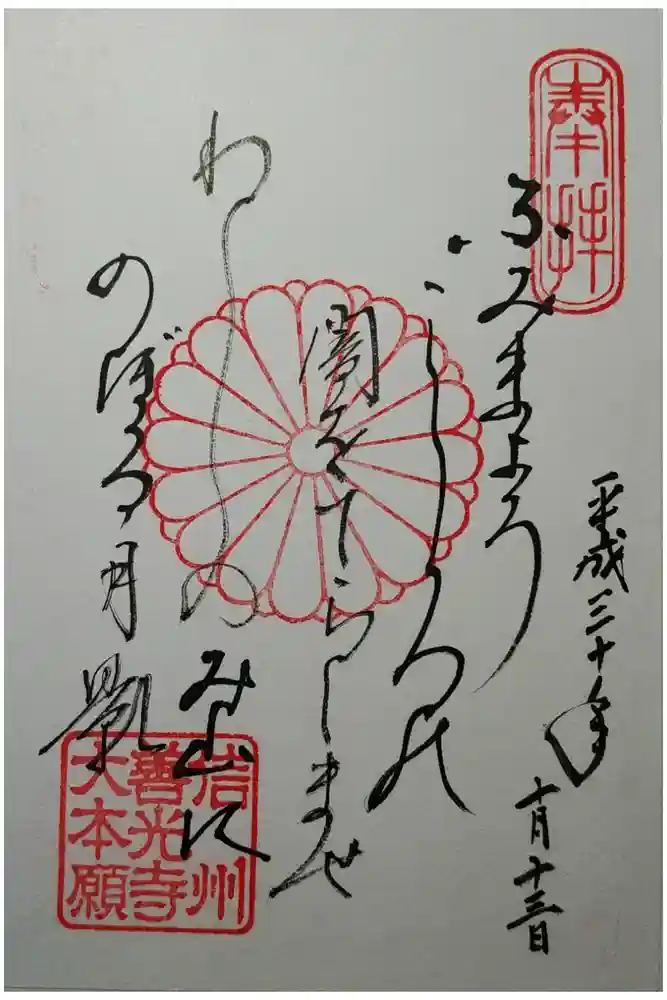 奉拝
平成三十年
十月十三日
ふみまよう
こゝろの
闇をてらしませ
わしのみ山に
のぼる月影
信州
善光寺
大本願